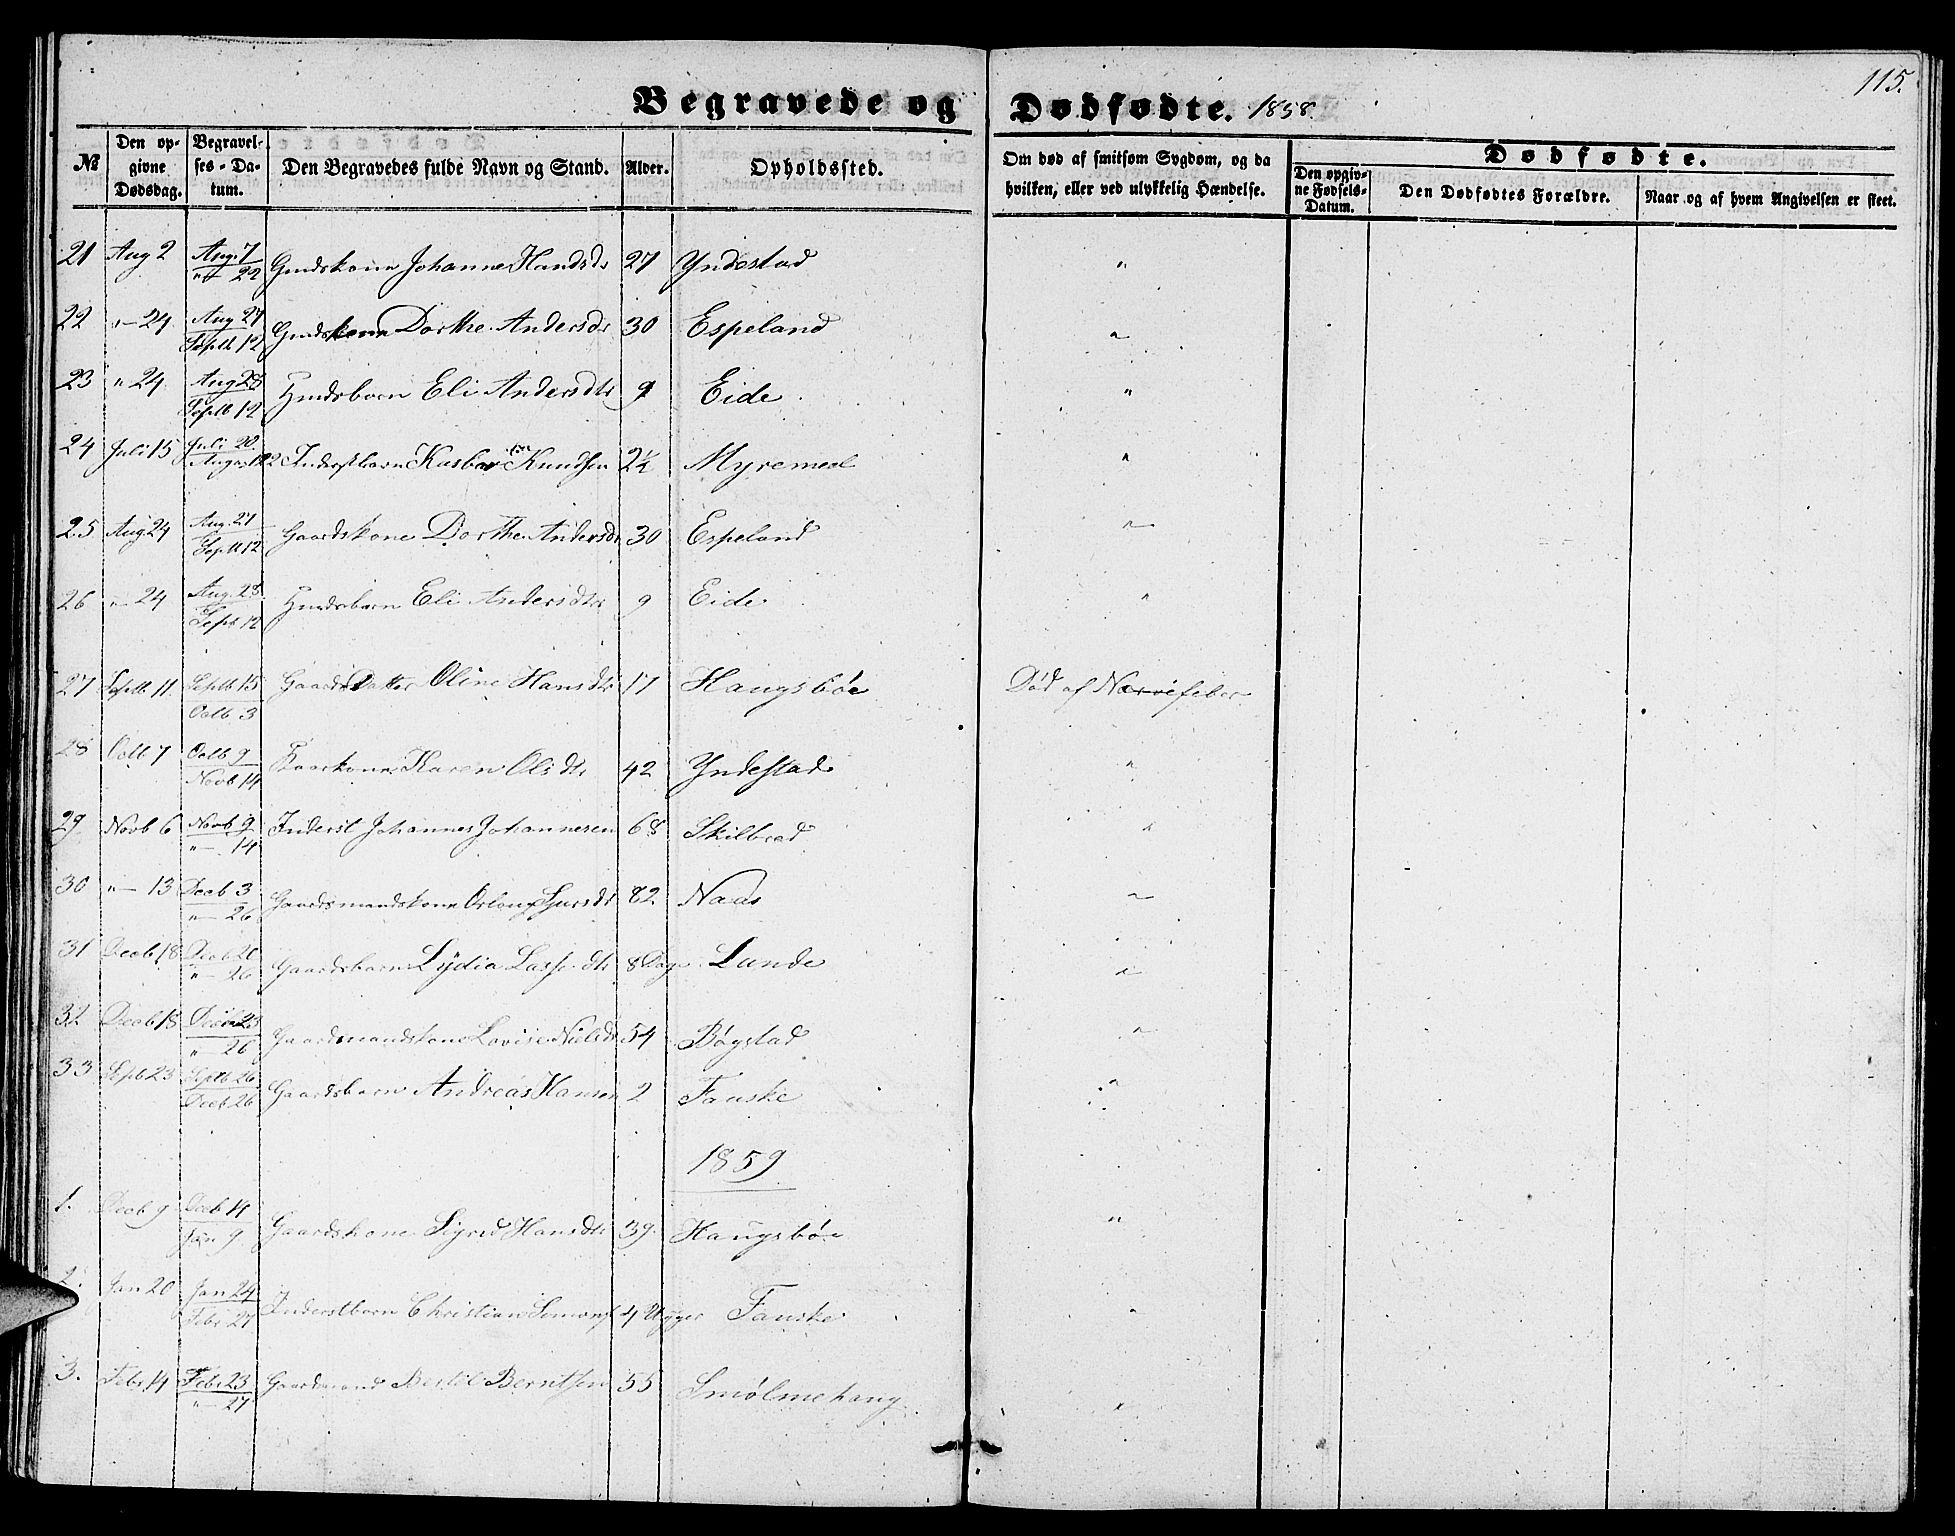 115.
Begravede og Dødfødte. 1858.
№
Den opgivne Dødsdag.
Begravelses-Datum.
Den Begravedes fulde Navn og Stand.
Alder.
Opholdssted.
Om død af smitsom Sygdom, og da hvilken, eller ved ulykkelig Hændelse.
Dødfødte.
Den opgivne Fødsels-Datum.
Den Dødfødtes Forældre.
Naar og af hvem Angivelsen er skeet.
21 Aug 2 Aug. 7 "— 22 Johanne Handsdr 27 Yndestad "
22 "— 24 Aug 27 Septb 12 Dorthe Andersdr 30 Espeland "
23 " 24 Aug 28 Septb 12 Eli Andersdtr 9 Eide "
24 Juli 15 Juli 20 August 22 Inderstbarn Kasber Knudsen 2½ Myremel "
25 Aug 24 Aug. 27 Septb 12 Gaardskone Dorthe Andersdr 30 Espeland "
26 "— 24 Aug. 28 Septb 12 Eli Andersdtr 9 Eide "
27 Septb 11 Septb 15 Octb 3 Gaards Datter Oline Hansdtr 17 Haugsbøe Død af Nervefeber
28 Octb 7 Octb 9 Novb 14 Karen Olsdtr 42 Yndestad "
29 Novb 6 Novb 9 "— 14 Inderst Johannes Johannesen 68 Skilbred "
30 "— 13 Decb 3 "— 26 Gaardsmandskone 82 Naas "
31 Decb 18 Decb 20 "— 26 Gaardsbarn Lydia Lassedtr 8 Dage Lunde "
32 Decb 18 Decb 23 " 26 Gaardsmandskone Lovise Nielsdr 54 Bøgstad "
33 Sept 23 Septb 26 Decb 26 Gaardsbarn Andreas Hansen 2 Fauske "
1859
1. Decb 9 Decb 14 Jan 9 Gaardskone Sigrid Hansdtr 39 Haugsbøe "
2. Jan 20 Jan 24 Febr 27 Inderstbarn Christian Simons 4 Uger Fauske "
3. Febr 14 Febr 23 "— 27 Gaardmand Bertil Berntsen 55 Smølmehaug "